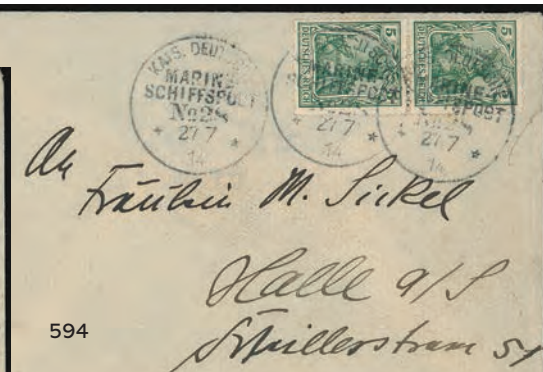 KAIS. DEUTSCHE
MARINE-
SCHIFFSPOST
No 28
* 27 7 *
14
5
DEUTSCHES REICH
5
DEUTSCHES REICH
MARINE-
SCHIFFSPOST
* 27 7 *
14
MARINE-
SCHIFFSPOST
27 7 *
14
An
Fräulein M. Sickel
Halle a/S
Schillerstrasse 51
594